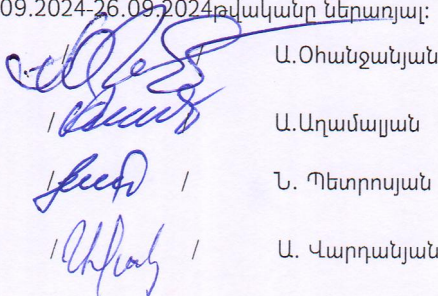 09.2024-26.09.2024թվականը ներառյալ:
/ / Ա.Օհանջանյան
/ / Ա.Աղամալյան
/ / Ն. Պետրոսյան
/ / Ա. Վարդանյան